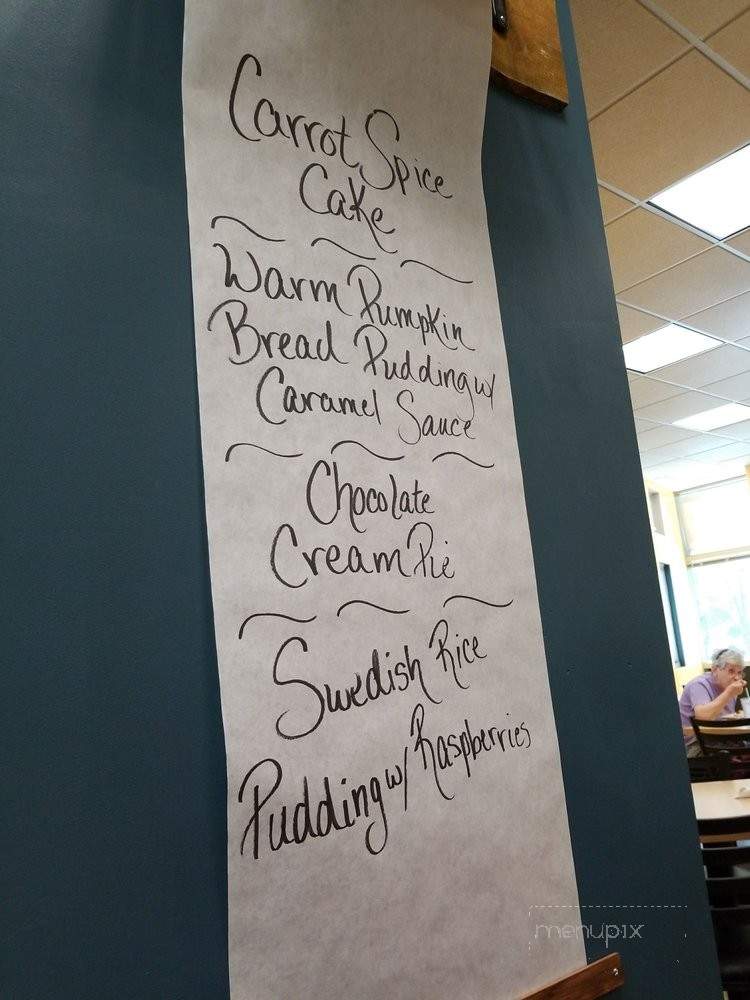 Carrot Spice
Cake
Warm Pumpkin
Bread Pudding w/
Caramel Sauce
Chocolate
Cream Pie
Swedish Rice
Pudding w/ Raspberries
menupix